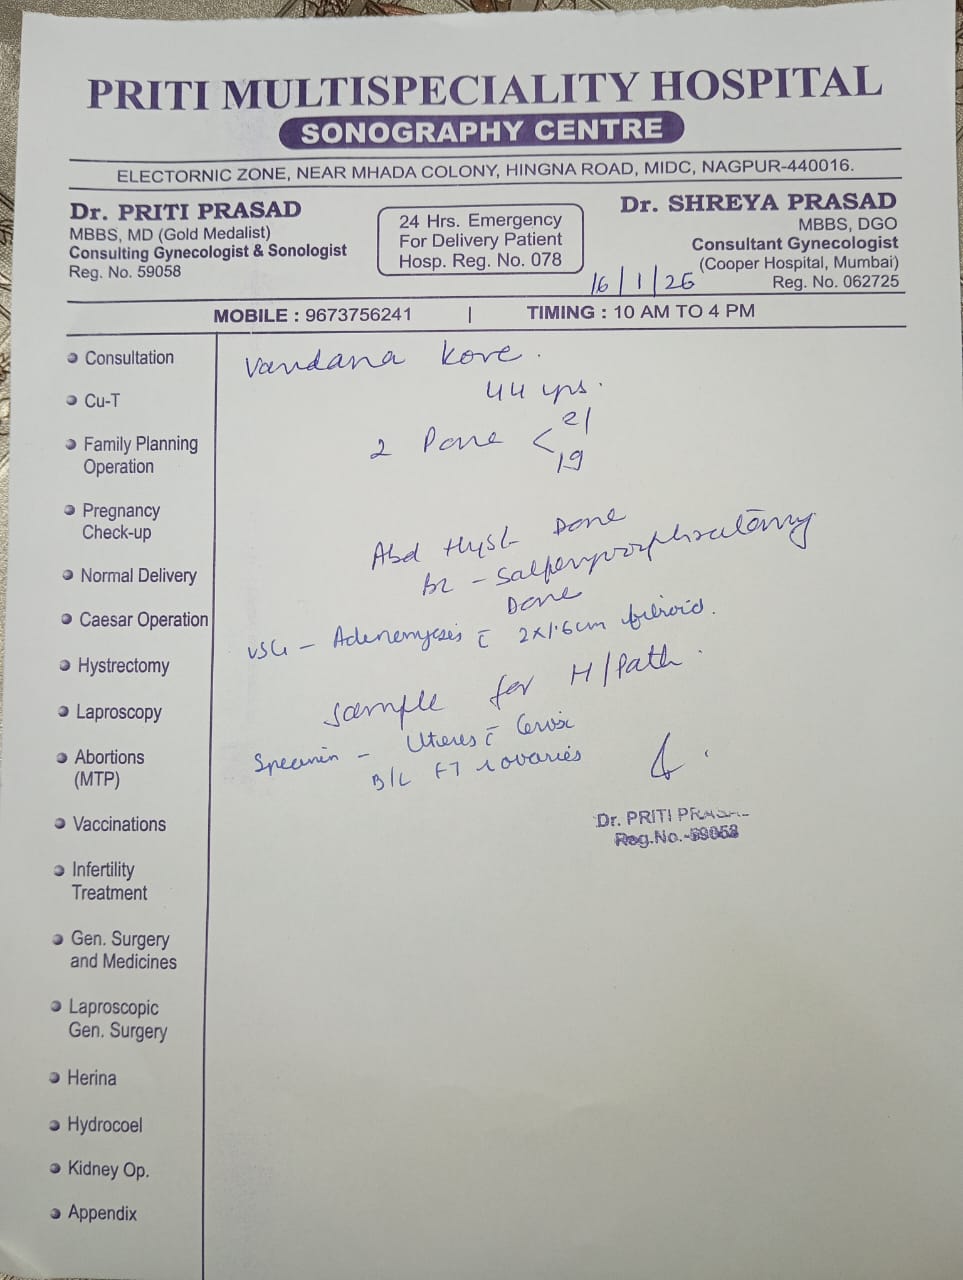 PRITI MULTISPECIALITY HOSPITAL
SONOGRAPHY CENTRE
ELECTORNIC ZONE, NEAR MHADA COLONY, HINGNA ROAD, MIDC, NAGPUR-440016.
Dr. PRITI PRASAD
MBBS, MD (Gold Medalist)
Consulting Gynecologist & Sonologist
Reg. No. 59058
24 Hrs. Emergency
For Delivery Patient
Hosp. Reg. No. 078
Dr. SHREYA PRASAD
MBBS, DGO
Consultant Gynecologist
(Cooper Hospital, Mumbai)
Reg. No. 062725
16/1/26
MOBILE : 9673756241 | TIMING : 10 AM TO 4 PM
Consultation
Cu-T
Family Planning
Operation
Pregnancy
Check-up
Normal Delivery
Caesar Operation
Hystrectomy
Laproscopy
Abortions
(MTP)
Vaccinations
Infertility
Treatment
Gen. Surgery
and Medicines
Laproscopic
Gen. Surgery
Herina
Hydrocoel
Kidney Op.
Appendix
Vandana Kore.
44 yrs.
2 < 21
19
Abd Hyst Done
B2 - Salpengoophractomy
Done
USG - Adenemysis c̄ 2x1.6cm fibroid.
Sample for H/Path.
Specimen - Uterus c̄ Cervix
B/L FT & ovaries
Dr. PRITI PRASAD
Reg.No.-59058